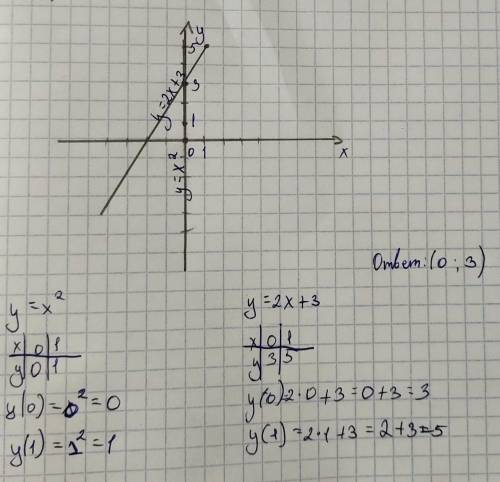 y
5
y=2x+3
3
1
0 1
x
y=x²
Ответ: (0 ; 3)
y = x²
x | 0 | 1
y | 0 | 1
y(0) = 0² = 0
y(1) = 1² = 1
y = 2x + 3
x | 0 | 1
y | 3 | 5
y(0)=2·0+3=0+3=3
y(1)=2·1+3=2+3=5